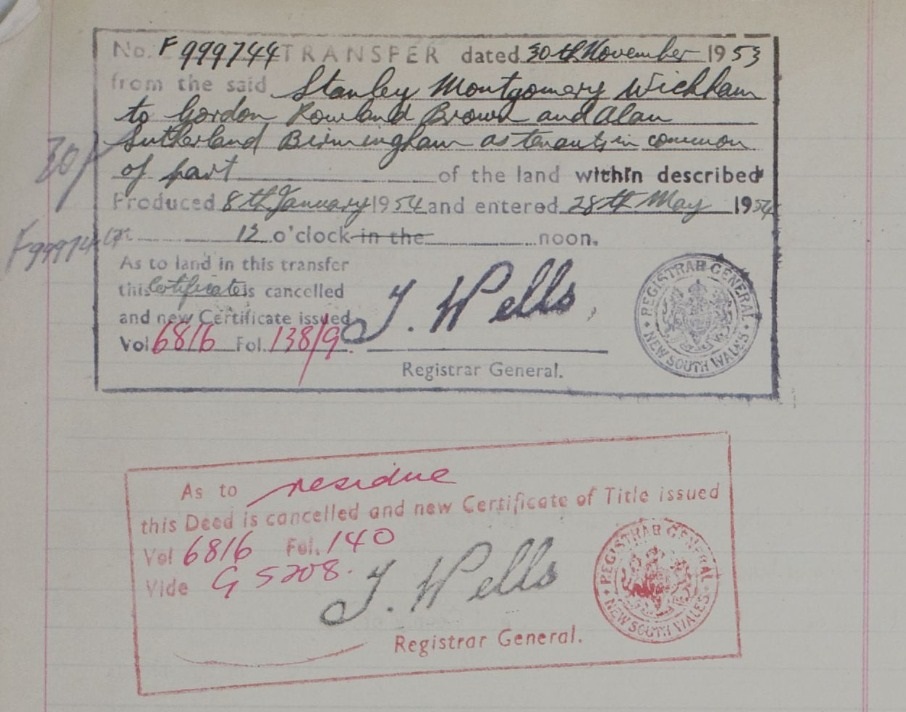 No. F999744 TRANSFER dated 30th November 1953
from the said Stanley Montgomery Wickham
to Gordon Rowland Brown and Alan
Sutherland Birmingham as tenants in common
of part of the land within described
Produced 8th January 1954 and entered 28th May 1954
12 o'clock in the noon.
As to land in this transfer
this Certificate is cancelled
and new Certificate issued
Vol 6816 Fol. 138/9
J. Wells
Registrar General.
REGISTRAR GENERAL
NEW SOUTH WALES
30/
F999744
As to residue
this Deed is cancelled and new Certificate of Title issued
Vol 6816 Fol. 140
Vide G5208.
J. Wells
Registrar General.
REGISTRAR GENERAL
NEW SOUTH WALES